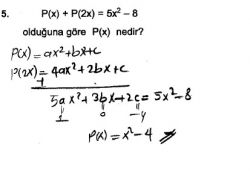 5. P(x) + P(2x) = 5x² – 8
olduğuna göre P(x) nedir?
P(x) = ax² + bx + c
P(2x) = 4ax² + 2bx + c
+
5ax² + 3bx + 2c = 5x² - 8
1 0 -4
P(x) = x² - 4